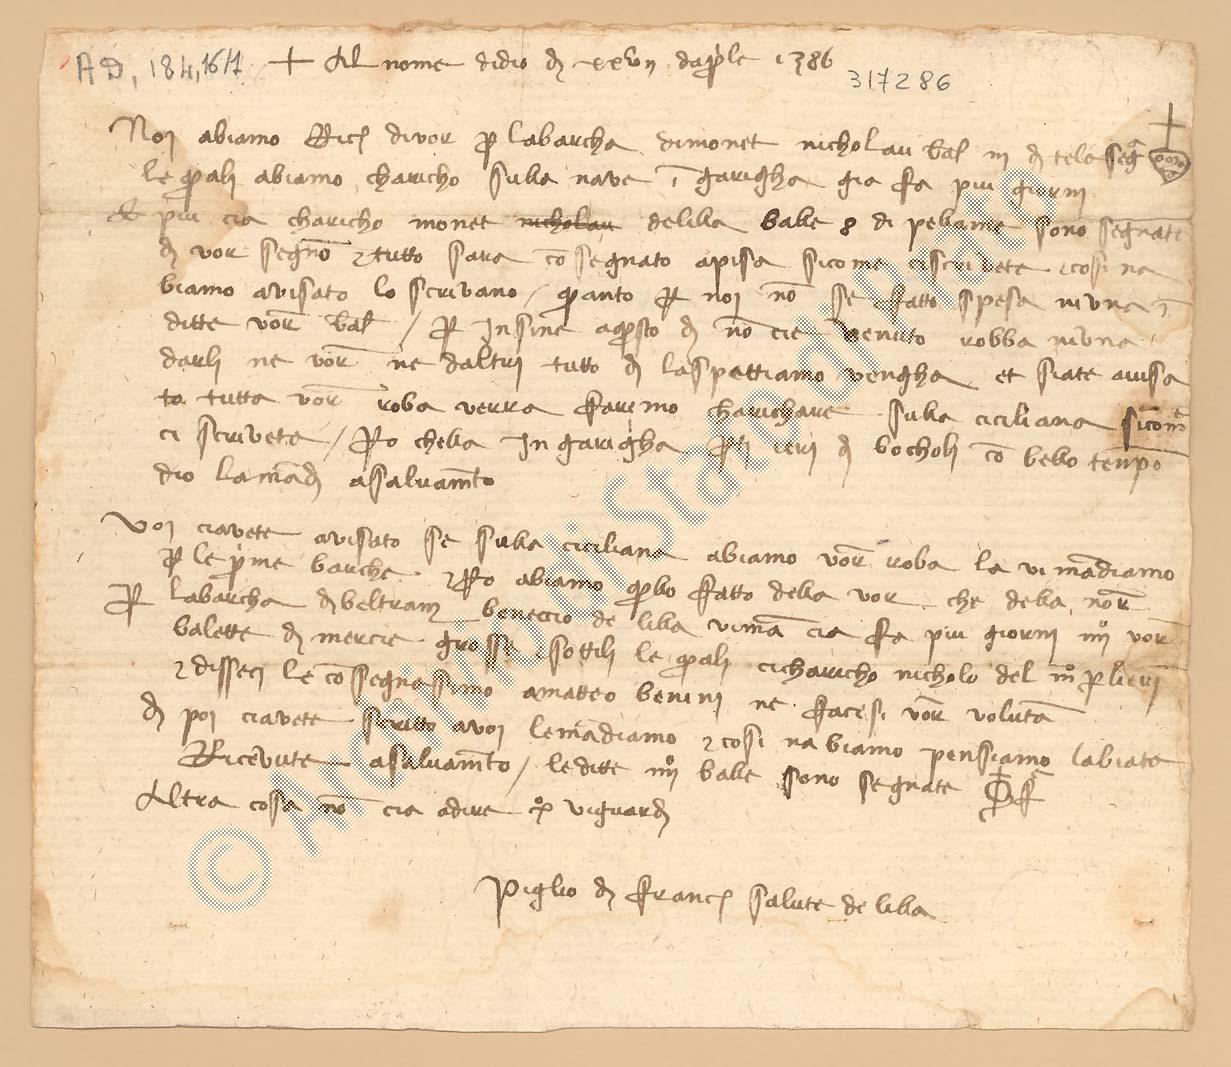 AD, 184,16/1 + Al nome didio di xxvii daprle 1386 317286
Noi abiamo Ric di vor p labarcha dimonet nicholau bal iii di tela seg
le quali abiamo charicho sulla nave i garigha gia fa piu giorni
E piu cia charicho monet nicholau delilla balle 8 di pellame sono segnate
di vor segno e tutto sara cosegnato apisa sicome ciscrivete e cosi na
biamo avisato lo scrivano / quanto p noi no se fatto spesa niuna i
ditte vor bal / p insine aquesto di no cie venuto robba niuna
darli ne vor ne daltri tutto di laspettiamo vengha et siate avisa
to tutta vor roba verra faremo charichare sulla ciciliana sicome
ci scrivete / po chella in garigha ieri di bocholi co bello tempo
dio lamadi asalvamto
Voi ciavete avisato se sulla ciciliana abiamo vor roba la vi madiamo
p le prime barche e po abiamo fatto della vor che della nor
p labarcha di beltram boneccio de lilla vima cia fa piu giorni iiii vor
balette di mercie grosse e sottili le quali cicharicho nicholo del mo
e disseci le cosegnassimo amatteo benini ne facesi vor voluta
di poi ciavete scritto avoi lemadiamo e cosi nabiamo pensiamo labiate
Ricevute asalvamto / le ditte iiii balle sono segnate
Altra cosa no cia adire xpo viguardi
Piglio di franc salute de lilla
© Archivio di Stato di Prato